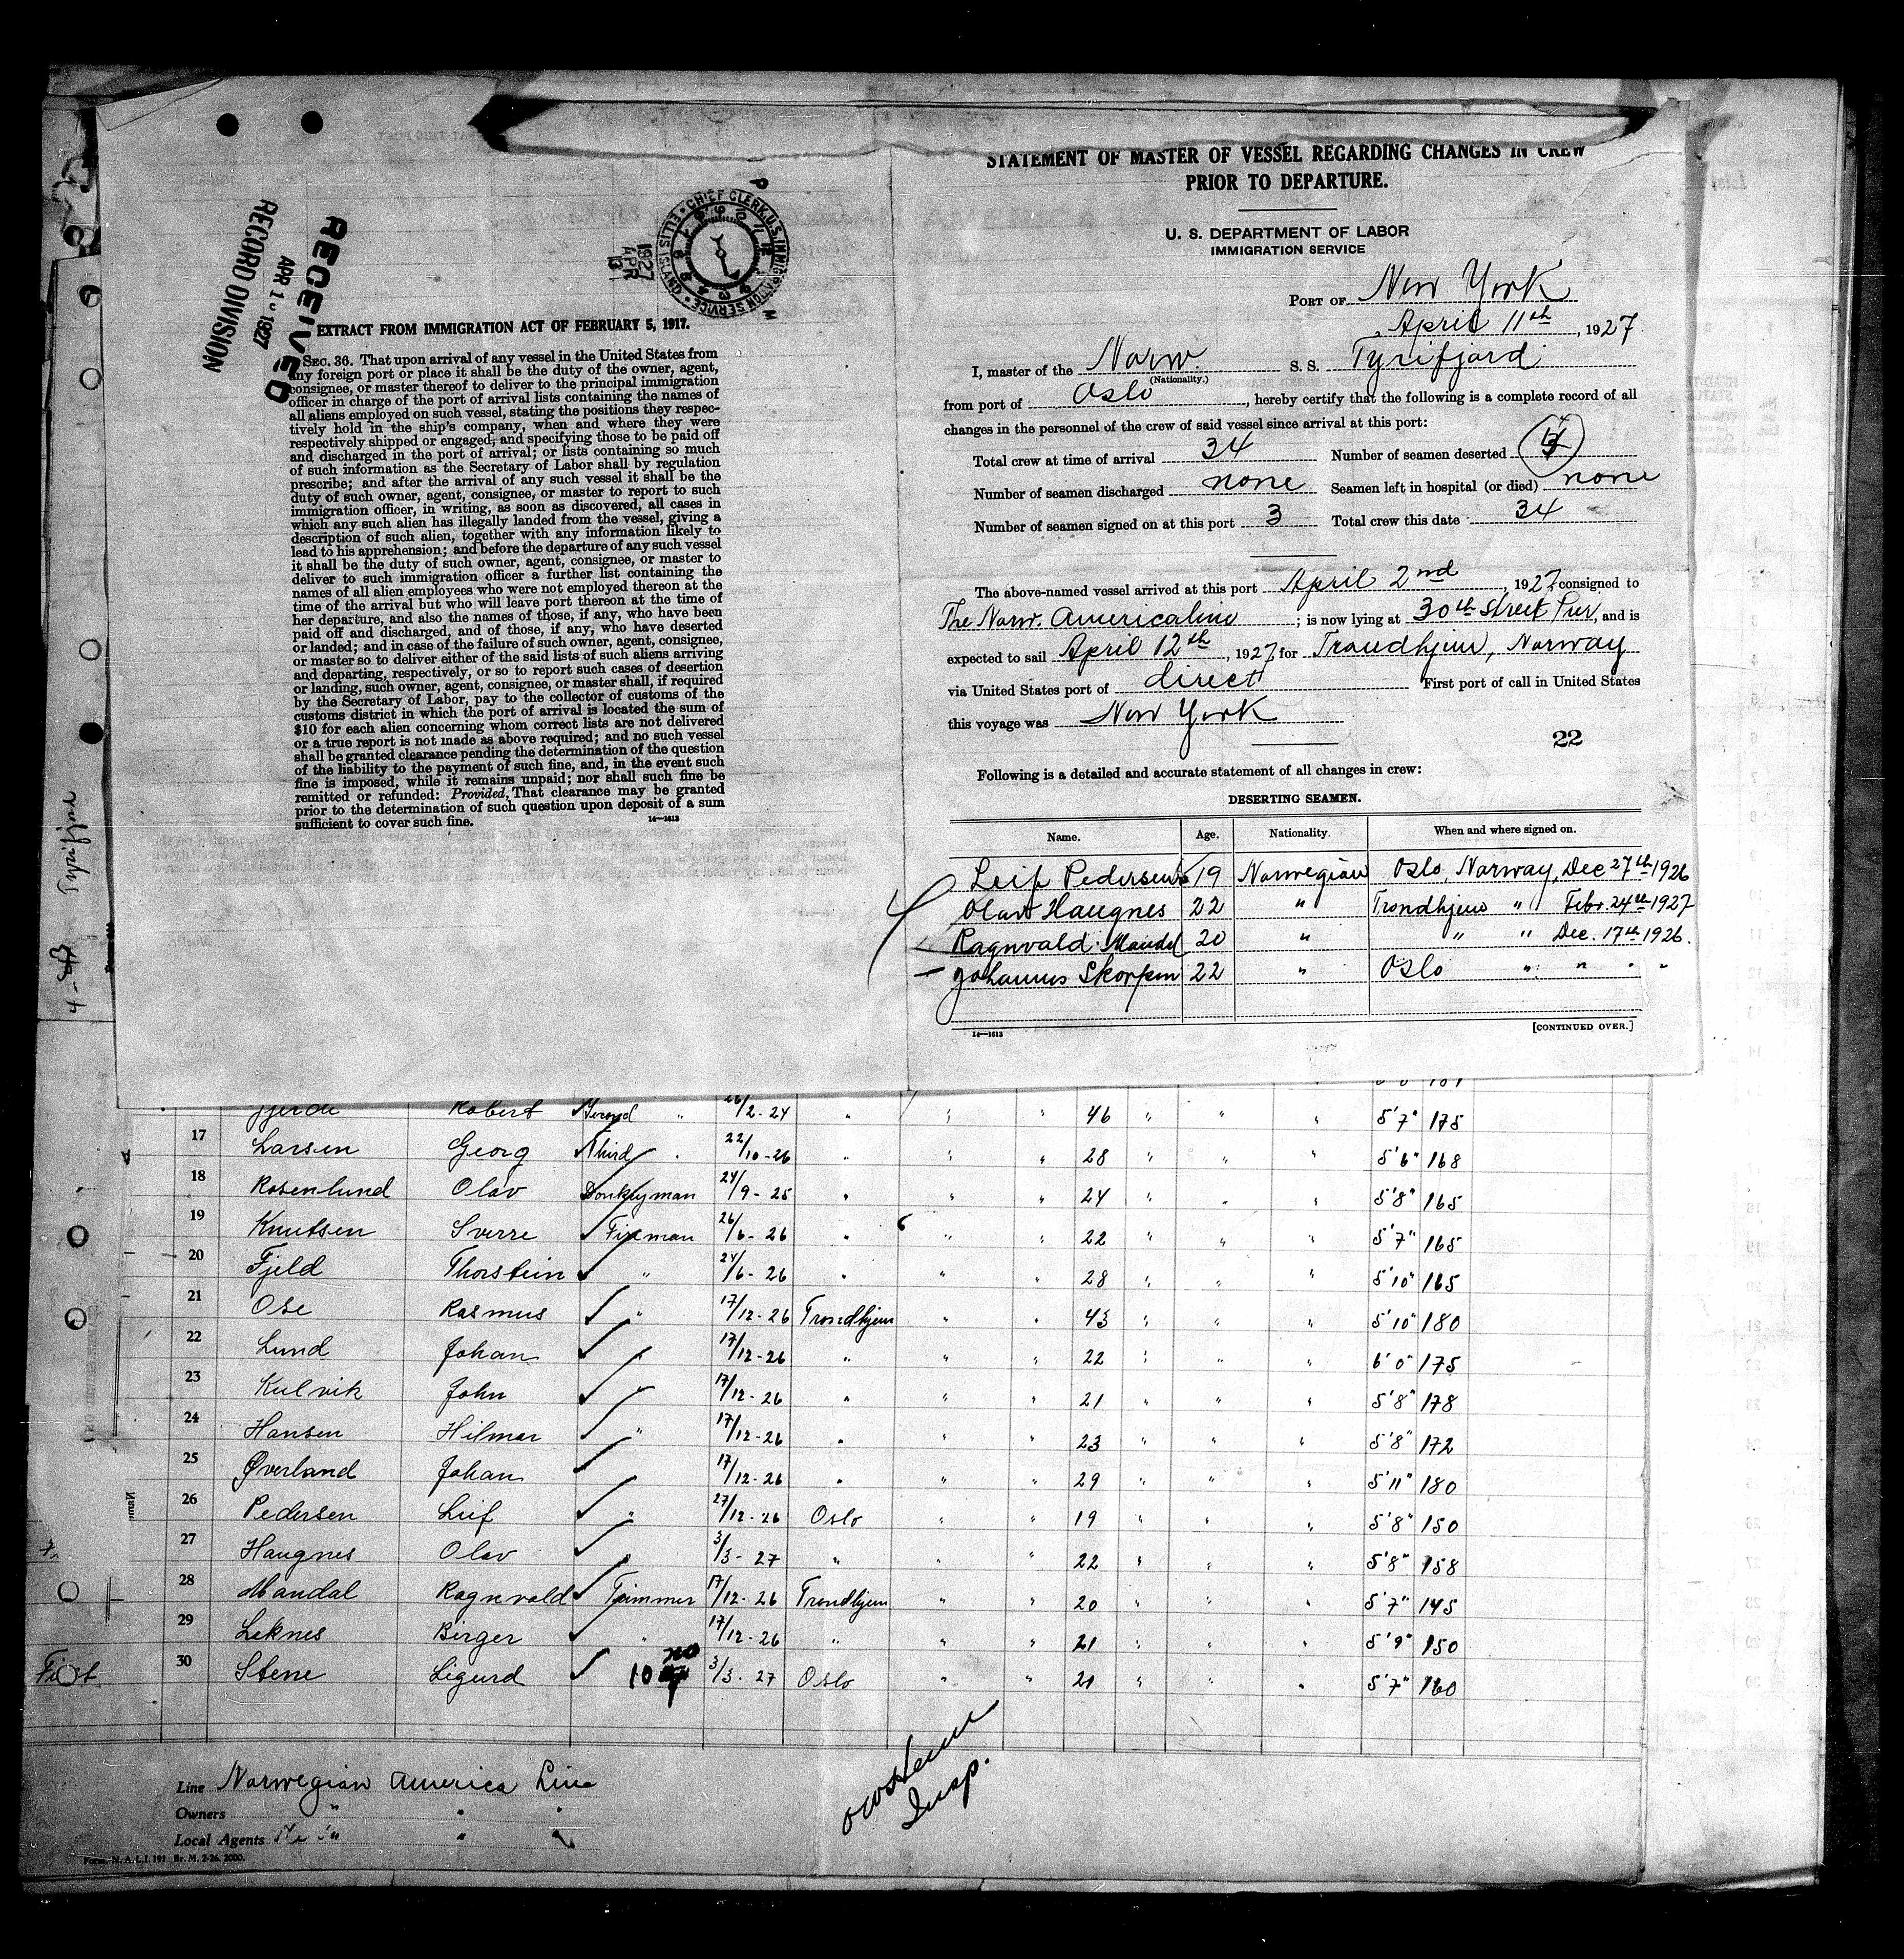 RECEIVED
APR 1 1927
RECORD DIVISION
CHIEF CLERK, U.S. IMMIGRATION SERVICE • ELLIS ISLAND •
1927
APR
13
EXTRACT FROM IMMIGRATION ACT OF FEBRUARY 5, 1917.
SEC. 36. That upon arrival of any vessel in the United States from
any foreign port or place it shall be the duty of the owner, agent,
consignee, or master thereof to deliver to the principal immigration
officer in charge of the port of arrival lists containing the names of
all aliens employed on such vessel, stating the positions they respec-
tively hold in the ship's company, when and where they were
respectively shipped or engaged, and specifying those to be paid off
and discharged in the port of arrival; or lists containing so much
of such information as the Secretary of Labor shall by regulation
prescribe; and after the arrival of any such vessel it shall be the
duty of such owner, agent, consignee, or master to report to such
immigration officer, in writing, as soon as discovered, all cases in
which any such alien has illegally landed from the vessel, giving a
description of such alien, together with any information likely to
lead to his apprehension; and before the departure of any such vessel
it shall be the duty of such owner, agent, consignee, or master to
deliver to such immigration officer a further list containing the
names of all alien employees who were not employed thereon at the
time of the arrival but who will leave port thereon at the time of
her departure, and also the names of those, if any, who have been
paid off and discharged, and of those, if any, who have deserted
or landed; and in case of the failure of such owner, agent, consignee,
or master so to deliver either of the said lists of such aliens arriving
and departing, respectively, or so to report such cases of desertion
or landing, such owner, agent, consignee, or master shall, if required
by the Secretary of Labor, pay to the collector of customs of the
customs district in which the port of arrival is located the sum of
$10 for each alien concerning whom correct lists are not delivered
or a true report is not made as above required; and no such vessel
shall be granted clearance pending the determination of the question
of the liability to the payment of such fine, and, in the event such
fine is imposed, while it remains unpaid; nor shall such fine be
remitted or refunded: Provided, That clearance may be granted
prior to the determination of such question upon deposit of a sum
sufficient to cover such fine.
14—1613
STATEMENT OF MASTER OF VESSEL REGARDING CHANGES IN CREW
PRIOR TO DEPARTURE.
U. S. DEPARTMENT OF LABOR
IMMIGRATION SERVICE
PORT OF New York
April 11th, 1927.
I, master of the Norw. S. S. Tyrifjord
(Nationality.)
from port of Oslo, hereby certify that the following is a complete record of all
changes in the personnel of the crew of said vessel since arrival at this port:
Total crew at time of arrival 34 Number of seamen deserted 4
Number of seamen discharged none Seamen left in hospital (or died) none
Number of seamen signed on at this port 3 Total crew this date 34
The above-named vessel arrived at this port April 2nd, 1927 consigned to
The Norw. Americaline; is now lying at 30th Street Pier, and is
expected to sail April 12th, 1927, for Trondhjem, Norway
via United States port of direct First port of call in United States
this voyage was New York
22
Following is a detailed and accurate statement of all changes in crew:
DESERTING SEAMEN.
Name. Age. Nationality. When and where signed on.
Leif Pedersen 19 Norwegian Oslo, Norway, Dec 27th 1926
Olav Haugnes 22 " Trondhjem " Febr. 24th 1927
Ragnvald Mandal 20 " " " Dec. 17th 1926.
Johannes Skorpen 22 " Oslo " " " "
14—1613 [CONTINUED OVER.]
Tyrifjord
Fjerde Robert Second " 26/2-24 " " " 46 " " " 5'7" 175
17 Larsen Georg Third " 22/10-26 " " " 28 " " " 5'6" 168
18 Rosenlund Olav Donkeyman 24/9-25 " " " 24 " " " 5'8" 165
19 Knutsen Sverre Fireman 26/6-26 " " " 22 " " " 5'7" 165
20 Fjeld Thorstein " 24/6-26 " " " 28 " " " 5'10" 165
21 Ose Rasmus " 17/12-26 Trondhjem " " 43 " " " 5'10" 180
22 Lund Johan " 17/12-26 " " " 22 " " " 6'0" 175
23 Kulvik John " 17/12-26 " " " 21 " " " 5'8" 178
24 Hansen Hilmar " 17/12-26 " " " 23 " " " 5'8" 172
25 Øverland Johan " 17/12-26 " " " 29 " " " 5'11" 180
26 Pedersen Leif " 27/12-26 Oslo " " 19 " " " 5'8" 150
27 Haugnes Olav " 3/3-27 " " " 22 " " " 5'8" 158
28 Mandal Ragnvald Trimmer 17/12-26 Trondhjem " " 20 " " " 5'7" 145
29 Leknes Birger " 17/12-26 " " " 21 " " " 5'9" 150
30 Stene Sigurd 3/3-27 Oslo " " 21 " " " 5'7" 160
First
Line Norwegian America Line
Owners " " "
Local Agents " "
Form. N. A. L. I. 191 Br. M. 2-26. 2000.
Insp.